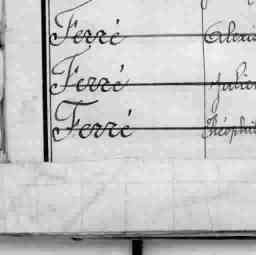 Ferré Alexi
Ferré Julien
Ferré Théophil